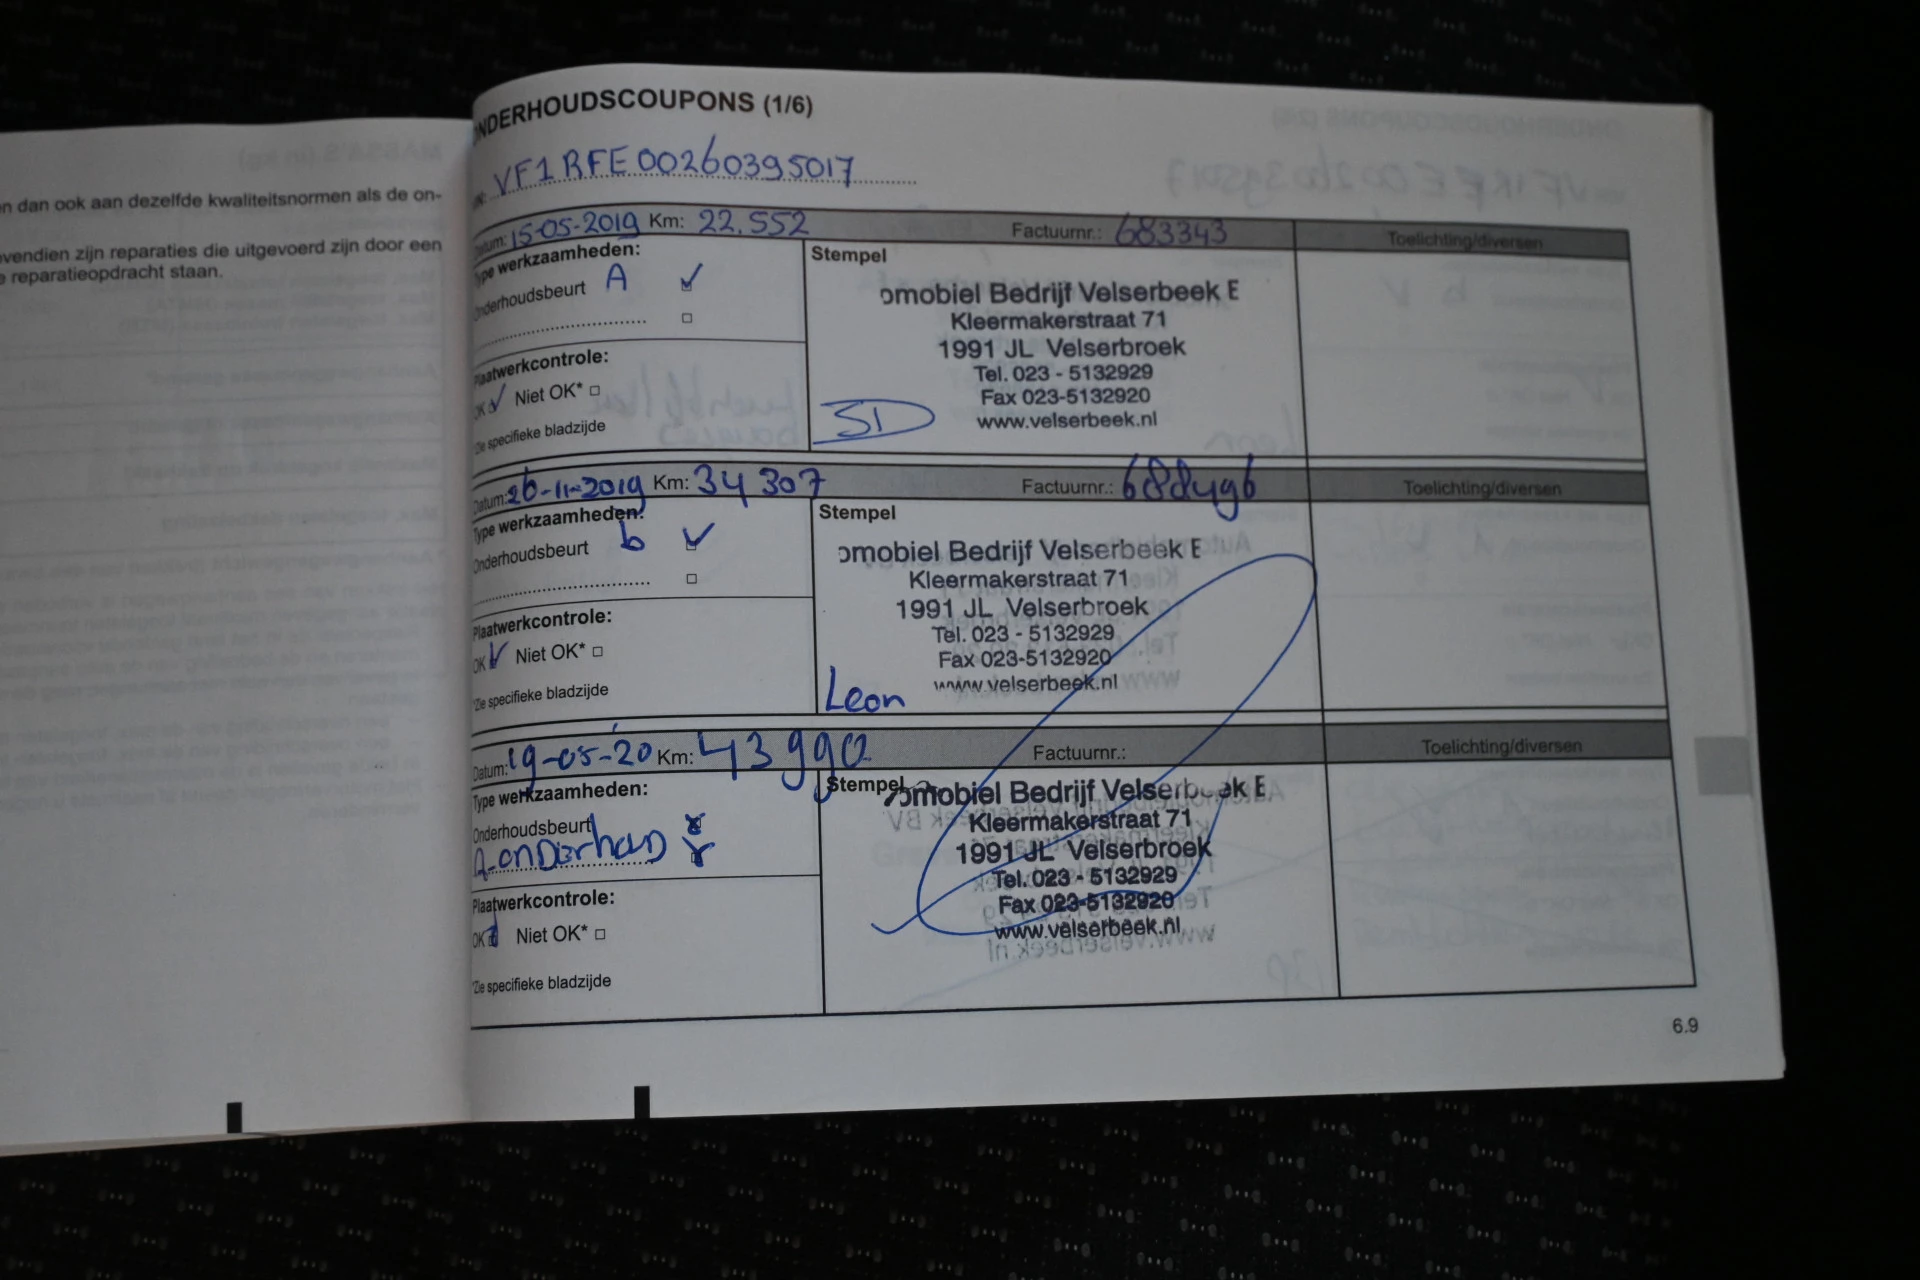 en dan ook aan dezelfde kwaliteitsnormen als de on-
vendien zijn reparaties die uitgevoerd zijn door een
e reparatieopdracht staan.
NDERHOUDSCOUPONS (1/6)
VF1RFE00260395017
Datum: 15-05-2019 Km: 22.552 Factuurnr.: 683343 Toelichting/diversen
Type werkzaamheden:
Onderhoudsbeurt A ✓
Plaatwerkcontrole:
OK ✓ Niet OK* □
*Zie specifieke bladzijde
Stempel
omobiel Bedrijf Velserbeek E
Kleermakerstraat 71
1991 JL Velserbroek
Tel. 023 - 5132929
Fax 023-5132920
www.velserbeek.nl
SD
Datum: 26-11-2019 Km: 34307 Factuurnr.: 688496 Toelichting/diversen
Type werkzaamheden:
Onderhoudsbeurt b ✓
Plaatwerkcontrole:
OK ✓ Niet OK* □
*Zie specifieke bladzijde
Stempel
omobiel Bedrijf Velserbeek E
Kleermakerstraat 71
1991 JL Velserbroek
Tel. 023 - 5132929
Fax 023-5132920
www.velserbeek.nl
Leon
Datum: 19-05-'20 Km: 43990 Factuurnr.: Toelichting/diversen
Type werkzaamheden:
Onderhoudsbeurt
A-onderhoud
Plaatwerkcontrole:
OK Niet OK* □
*Zie specifieke bladzijde
Stempel
omobiel Bedrijf Velserbeek E
Kleermakerstraat 71
1991 JL Velserbroek
Tel. 023 - 5132929
Fax 023-5132920
www.velserbeek.nl
6.9